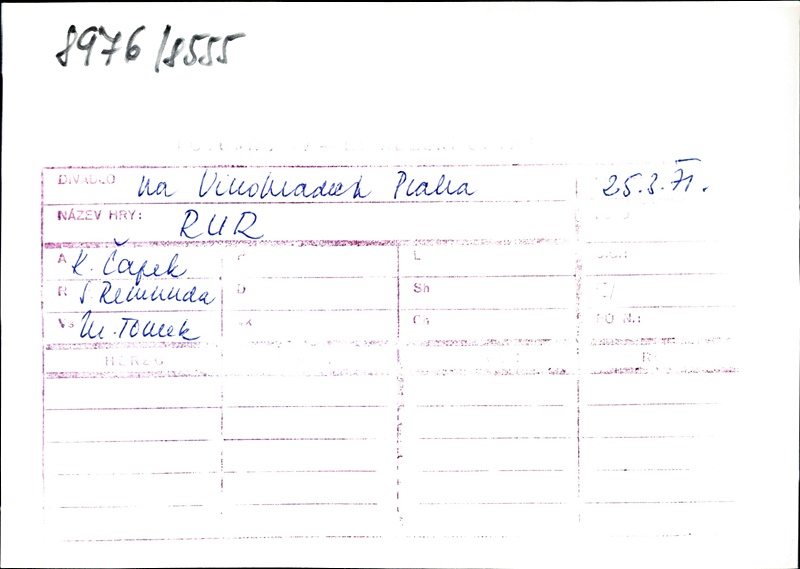 8976/8555
DIVADLO na Vinohradech Praha 25.3.71.
NÁZEV HRY: RUR
A K. Čapek L
R S. Remunda D Sh
Vs M. Tomek Ch PO N.:
HEREC R